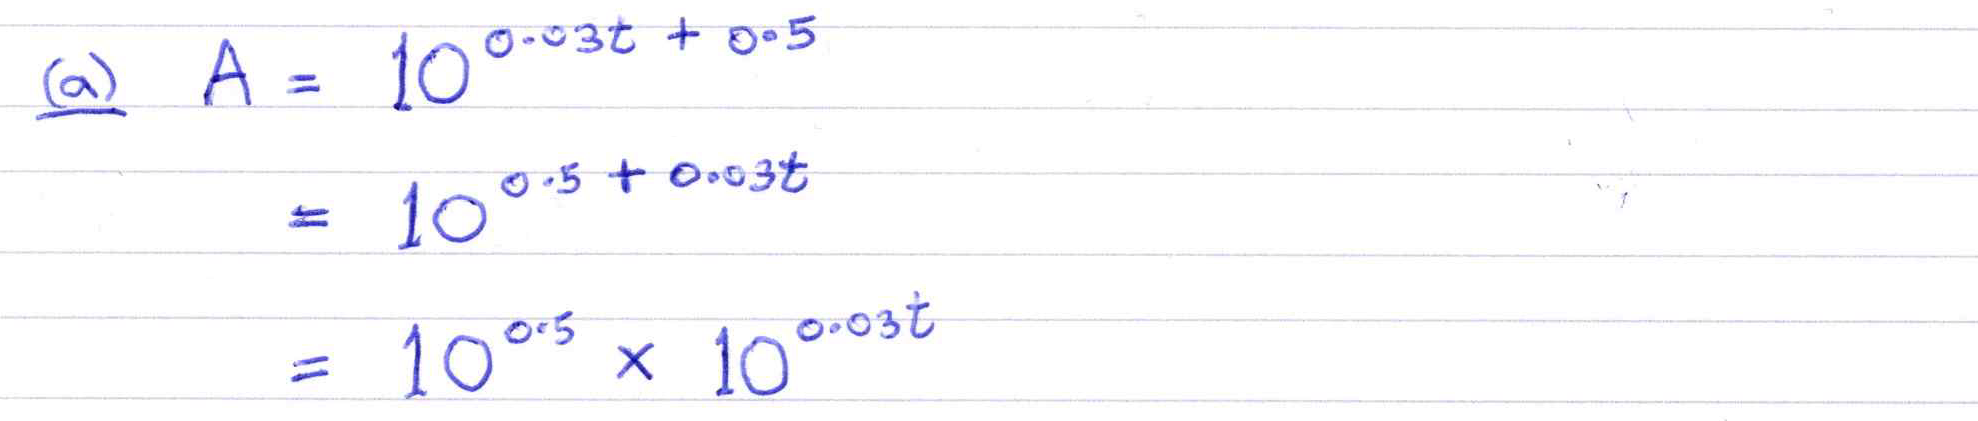 (a) A = 10^{0.03t + 0.5}
= 10^{0.5 + 0.03t}
= 10^{0.5} × 10^{0.03t}